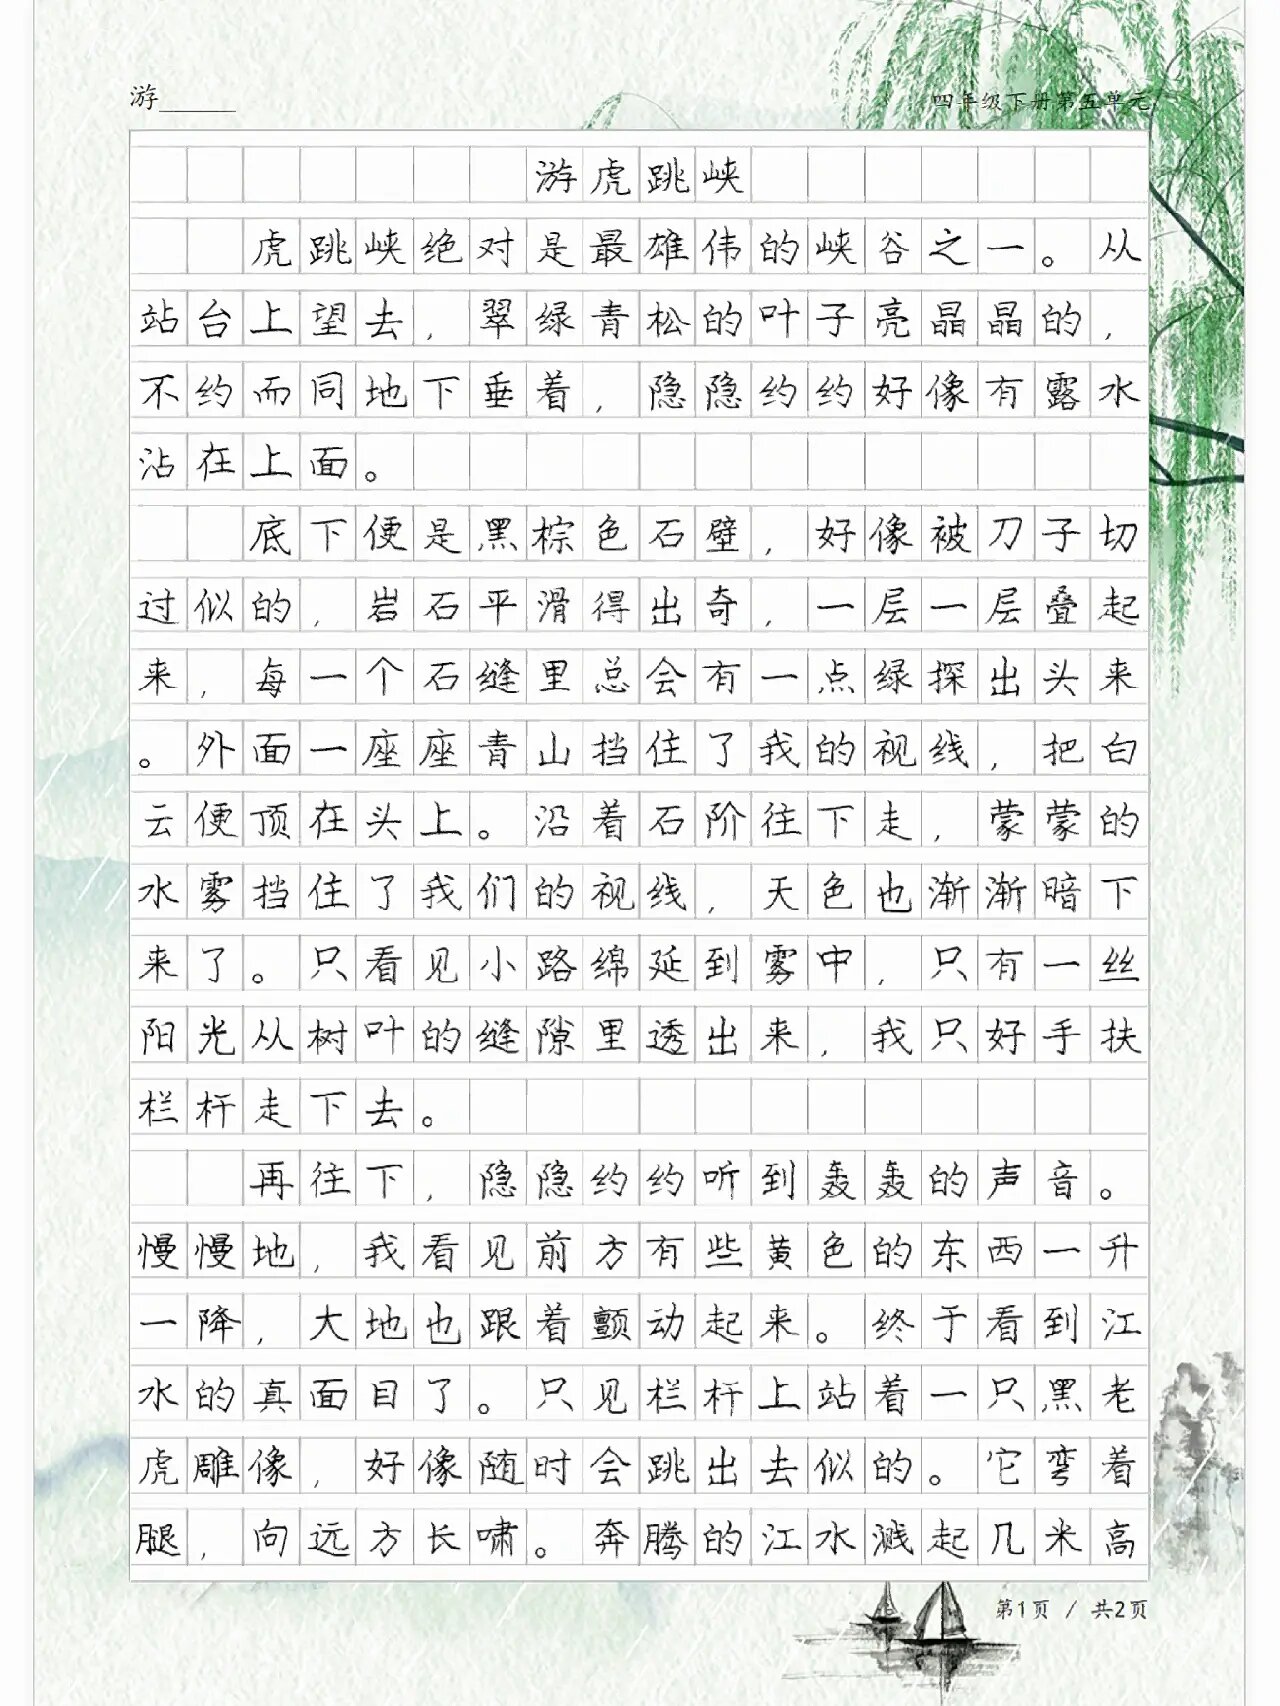 游______
四年级下册第五单元
游虎跳峡
虎跳峡绝对是最雄伟的峡谷之一。从
站台上望去，翠绿青松的叶子亮晶晶的，
不约而同地下垂着，隐隐约约好像有露水
沾在上面。
底下便是黑棕色石壁，好像被刀子切
过似的，岩石平滑得出奇，一层一层叠起
来，每一个石缝里总会有一点绿探出头来
。外面一座座青山挡住了我的视线，把白
云便顶在头上。沿着石阶往下走，蒙蒙的
水雾挡住了我们的视线，天色也渐渐暗下
来了。只看见小路绵延到雾中，只有一丝
阳光从树叶的缝隙里透出来，我只好手扶
栏杆走下去。
再往下，隐隐约约听到轰轰的声音。
慢慢地，我看见前方有些黄色的东西一升
一降，大地也跟着颤动起来。终于看到江
水的真面目了。只见栏杆上站着一只黑老
虎雕像，好像随时会跳出去似的。它弯着
腿，向远方长啸。奔腾的江水溅起几米高
第1页 / 共2页